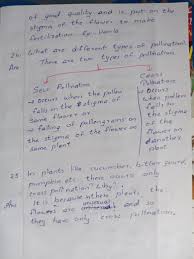 of good quality and is put on the
stigma of the flower to make
fertilization Eg:- Vanila
26. What are different types of pollination?
Ans There are two types of pollination
Self Pollination
→ Occurs when the pollen
falls in the stigma of same
flower or
→ falling of pollengrains on
the stigma of the flower on
same plant
Cross Pollination
→ Occurs
when pollen
falls to
the stigma
of a
flower on
another
plant
25. In plants like cucumber, bitter gourd,
pumpkin etc there occurs only
cross pollination? Why?
Ans It is because in these plants the
flowers are unisexual and so
they have only cross pollination.